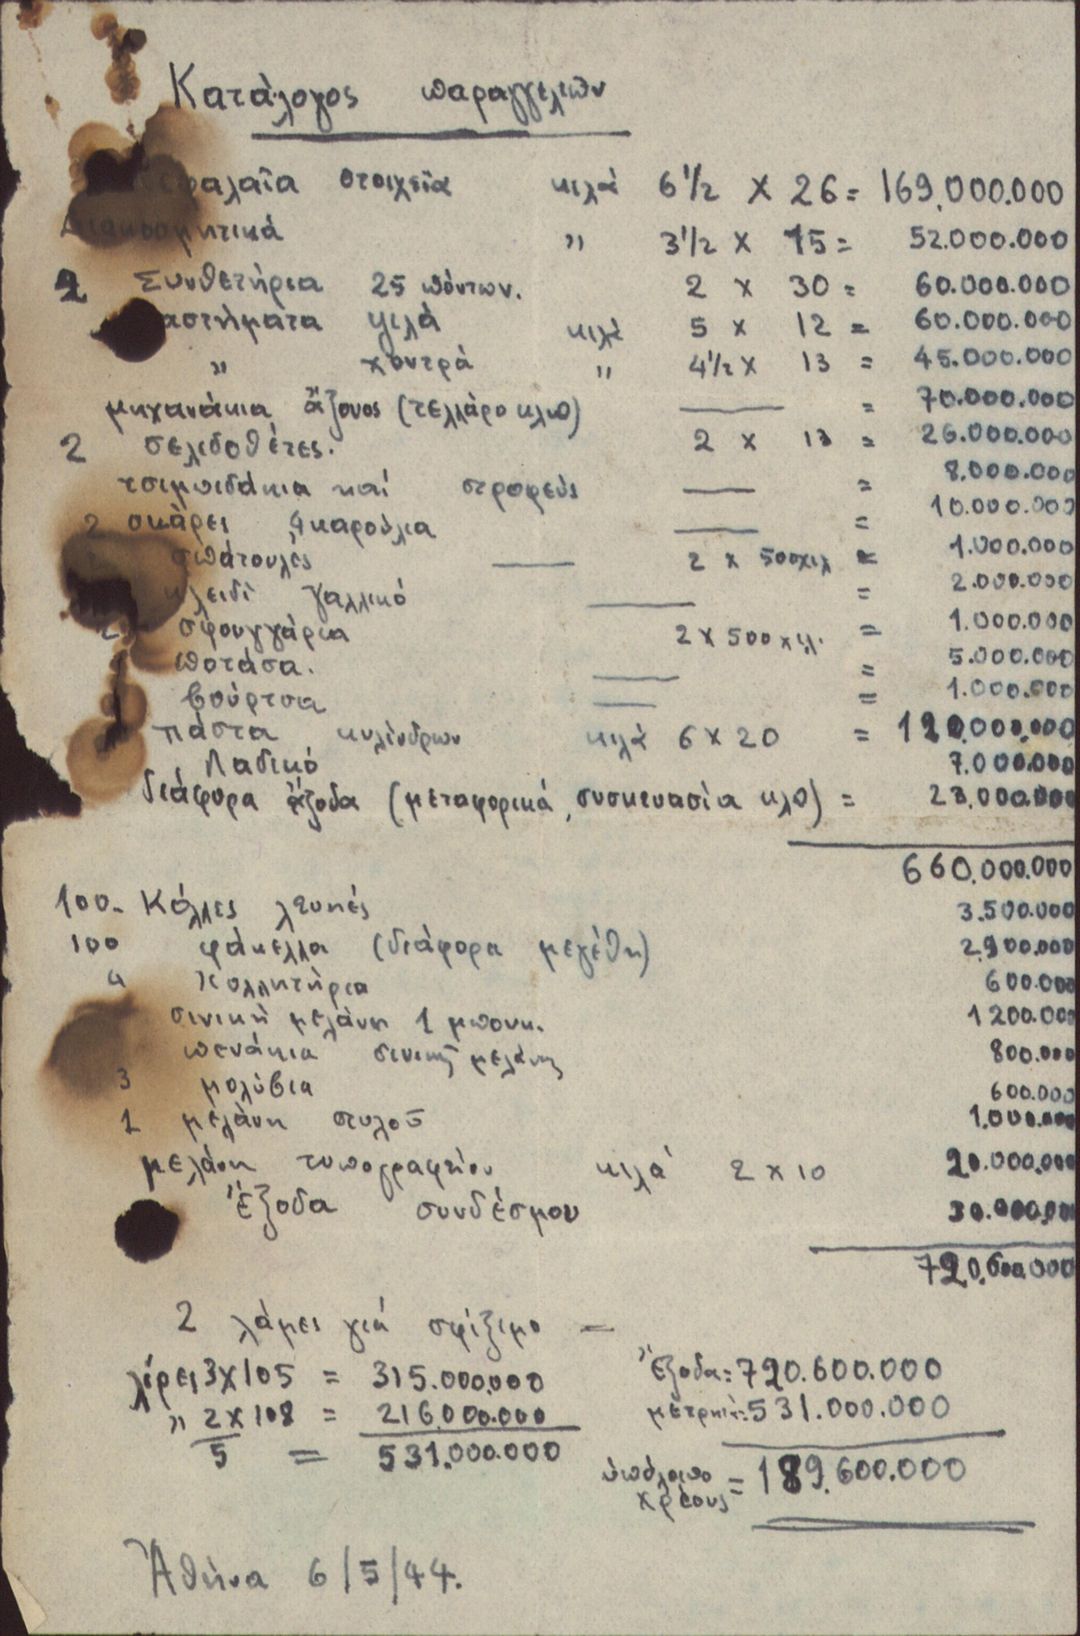 Κατάλογος παραγγελιῶν
κεφαλαῖα στοιχεῖα κιλά 6 1/2 Χ 26 = 169.000.000
Διακοσμητικά " 3 1/2 Χ 15 = 52.000.000
2 Συνθετήρια 25 πόντων. 2 Χ 30 = 60.000.000
αστήματα ψιλά κιλά 5 Χ 12 = 60.000.000
" χοντρά " 4 1/2 Χ 13 = 45.000.000
μηχανάκια ἄξονος (τελλάρο κλπ) — = 70.000.000
2 σελιδοθέτες. 2 Χ 13 = 26.000.000
τσιμπιδάκια καί στροφεύς — = 8.000.000
2 σκάρες, 4 καρούλια — = 10.000.000
σπάτουλες — 2 Χ 500χιλ = 1.000.000
κλειδί γαλλικό — = 2.000.000
2 σφουγγάρια 2 Χ 500 χιλ. = 1.000.000
ποτάσα. — = 5.000.000
βούρτσα — = 1.000.000
πάστα κυλίνδρων κιλά 6 Χ 20 = 120.000.000
Λαδικό 7.000.000
διάφορα ἔξοδα (μεταφορικά, συσκευασία κλπ) = 23.000.000
660.000.000
100. Κόλλες λευκές 3.500.000
100 φάκελλα (διάφορα μεγέθη) 2.900.000
4 Κολλητήρια 600.000
σινική μελάνη 1 μπουκ. 1200.000
πενάκια σινικῆς μελάνης 800.000
3 μολύβια 600.000
1 μελάνη στυλοῦ 1.000.000
μελάνη τυπογραφείου κιλά 2 Χ 10 20.000.000
Ἔξοδα συνδέσμου 30.000.000
720.600.000
2 λάμες γιά σφίξιμο —
λίρες 3 Χ 105 = 315.000.000
" 2 Χ 108 = 216.000.000
5 = 531.000.000
Ἔξοδα = 720.600.000
μετρητά = 531.000.000
ὑπόλοιπο χρέους = 189.600.000
Ἀθήνα 6/5/44.